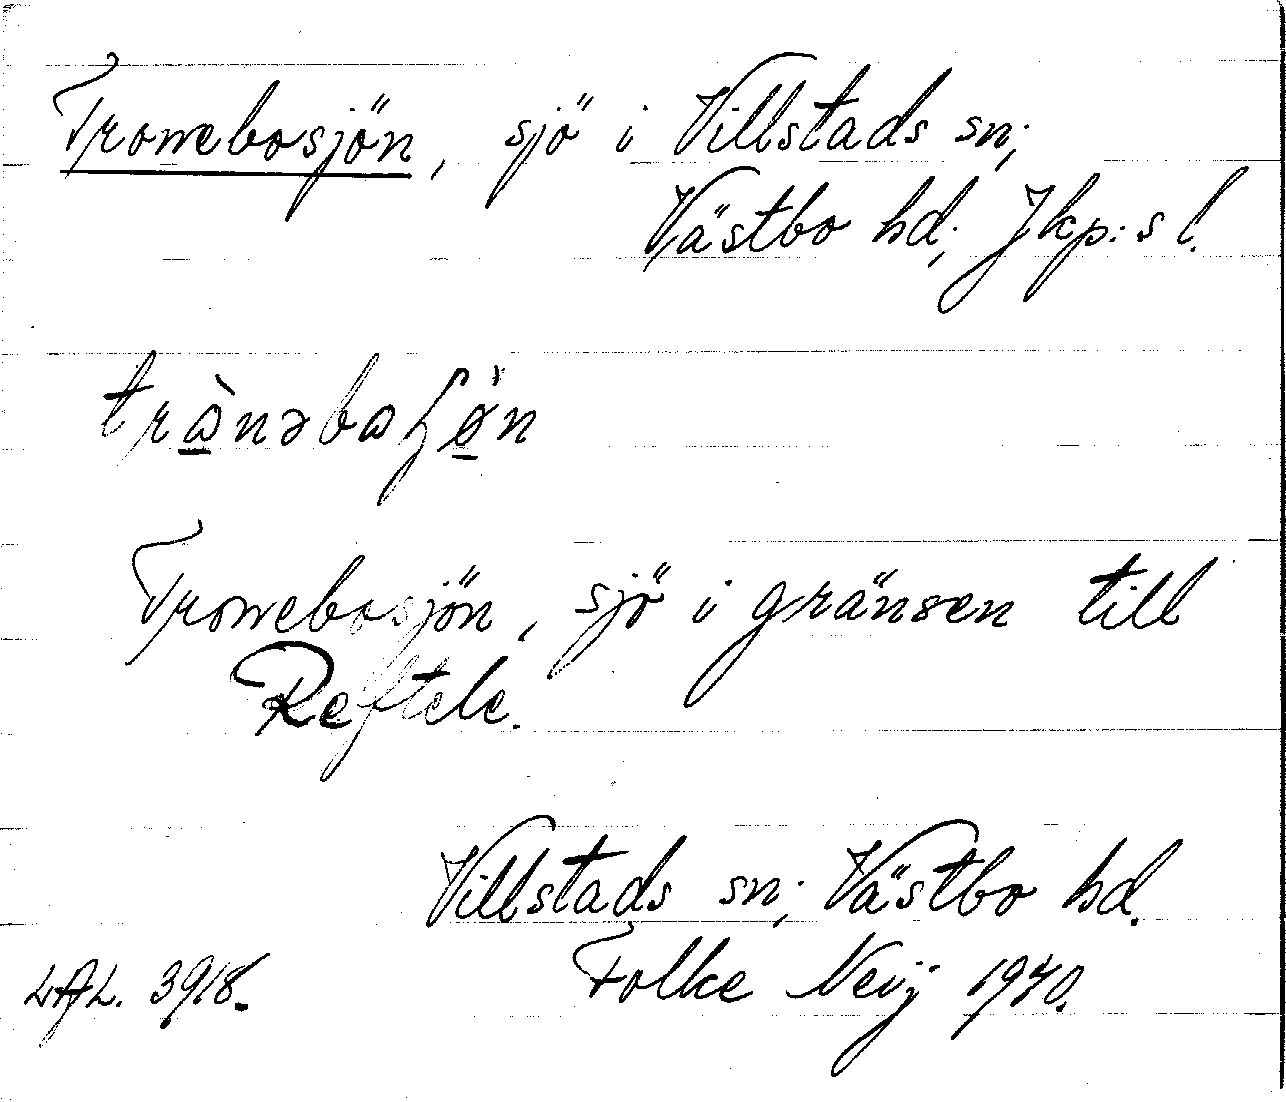 Tronnebosjön, sjö i Villstads sn;
Västbo hd; Jkp:s l.
trὼ̲nəbωʃø̲̈n
Tronnebosjön, sjö i gränsen till
Reftele.
Villstads sn; Västbo hd.
LAL. 3918. Folke Neij 1940.